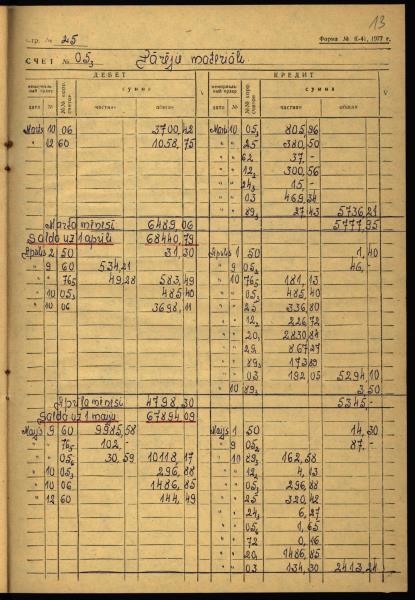 13
стр. № 25
Форма № К-41, 1977 г.
СЧЕТ № 05₃ Pārēju materiāli
ДЕБЕТ КРЕДИТ
сумма сумма
дата № частная общая V дата № частная общая V
Marts 10 06 3700,42 Marts 10 05₁ 805,96
" 12 60 1058,75 " 25 380,50
" 62 37,-
" 12₂ 300,56
" 24₃ 15,-
" 03 469,34
" 89₃ 27,43 5736,21
Marta mēnesī 6489,06 5777,95
Saldo uz 1 aprīli 68440,79
Aprīlis 2 50 31,30 Aprīlis 1 50 1,40
" 9 60 534,21 " 9 05₂ 46,-
" " 76₅ 49,28 583,49 " 10 76₅ 181,13
" 10 05₃ 485,40 " " 05₃ 485,40
" 10 06 3698,11 " 25 336,80
" 12₂ 226,72
" 20₁ 2830,84
" 29 867,27
" 89₃ 173,89
" 03 192,05 5294,10
" 10 89₃ 3,50
Aprīļa mēnesī 4798,30 5345,-
Saldo uz 1 maiju 67894,09
Maijs 9 60 9985,58 Maijs 1 50 14,30
" " 76₅ 102,- " 9 05₂ 87,-
" " 05₆ 30,59 10118,17 " 10 89₃ 162,58
" 10 05₃ 296,88 " " 12₂ 4,13
" 10 06 1486,85 " " 05₃ 296,88
" 12 60 144,49 " " 25 320,42
" 24₃ 6,27
" 05₆ 1,65
" 72 0,16
" 20₁ 1486,85
" 03 134,30 2413,24